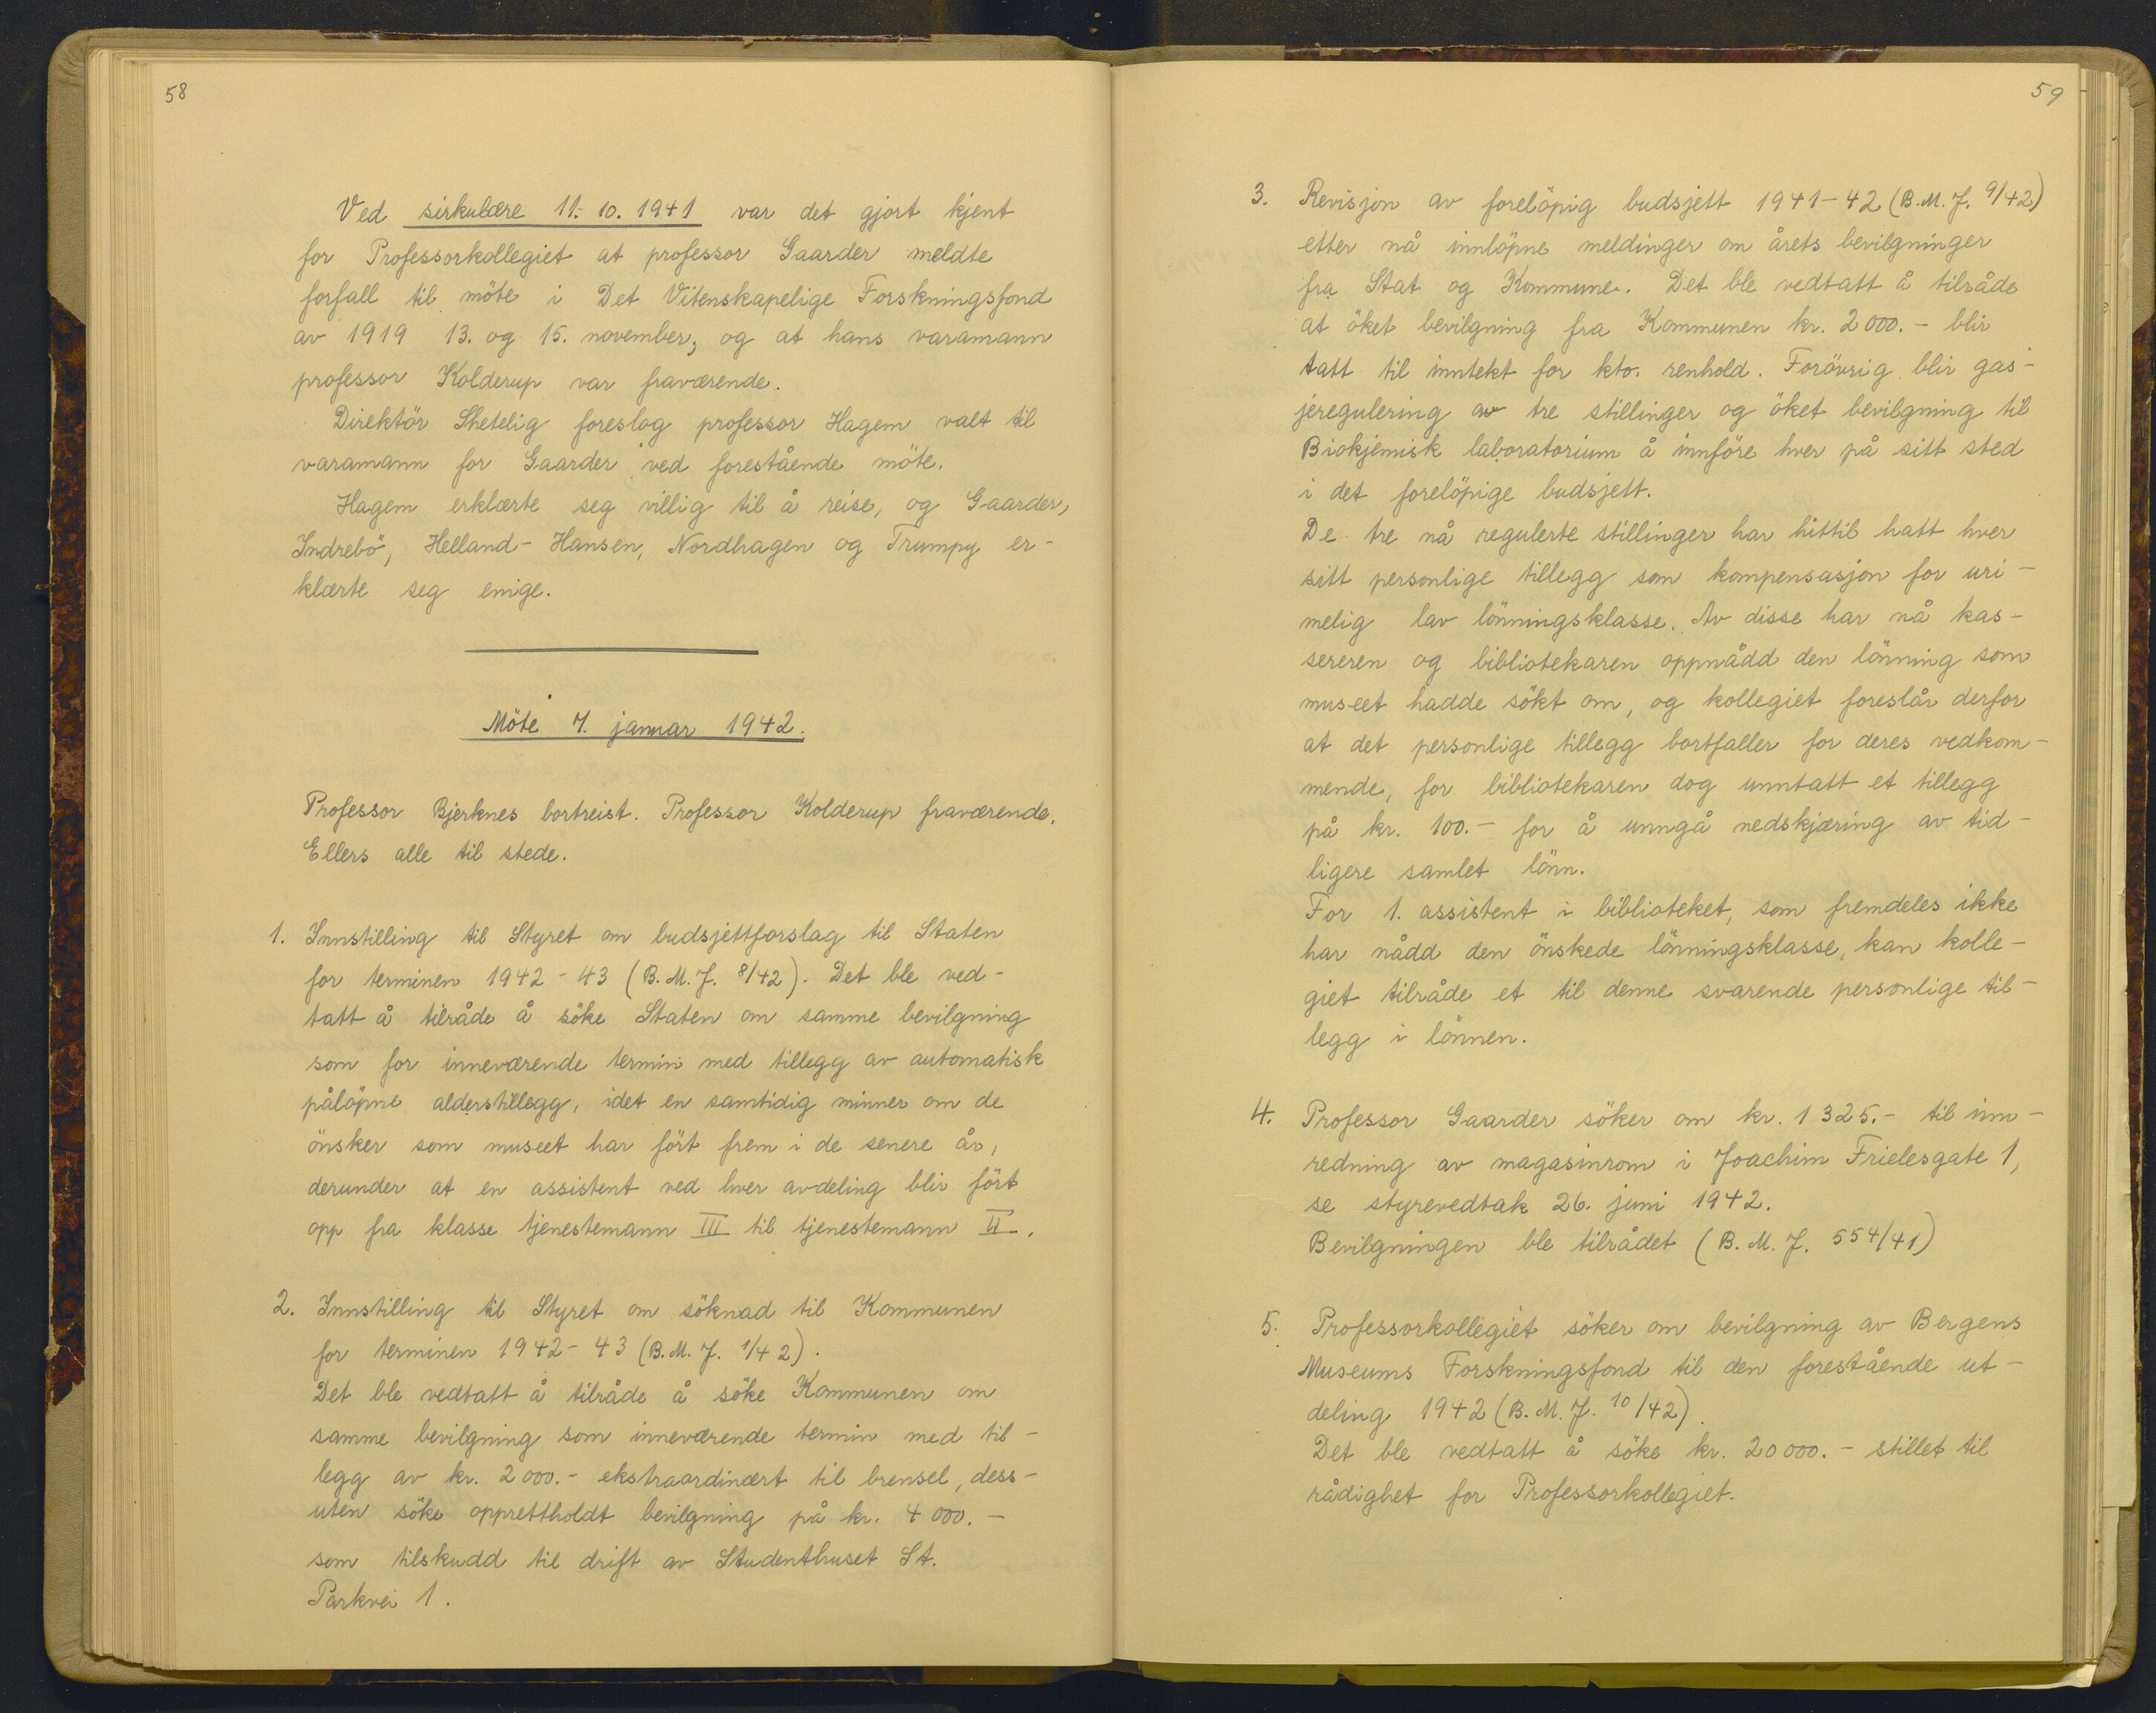 58
Ved sirkulære 11.10.1941 var det gjort kjent
for Professorkollegiet at professor Gaarder meldte
forfall til möte i Det Vitenskapelige Forskningsfond
av 1919 13. og 15. november, og at hans varamann
professor Kolderup var fraværende.
Direktör Shetelig foreslog professor Hagem valt til
varamann for Gaarder ved forestående möte.
Hagem erklærte seg villig til å reise, og Gaarder,
Indrebö, Helland-Hansen, Nordhagen og Trumpy er-
klærte seg enige.
Möte 7. januar 1942.
Professor Bjerknes bortreist. Professor Kolderup fraværende.
Ellers alle til stede.
1. Innstilling til Styret om budsjettforslag til Staten
for terminen 1942-43 (B.M.J. 8/42). Det ble ved-
tatt å tilråde å söke Staten om samme bevilgning
som for inneværende termin med tillegg av automatisk
pålöpne alderstillegg, idet en samtidig minner om de
önsker som museet har fört frem i de senere år,
derunder at en assistent ved hver avdeling blir fört
opp fra klasse tjenestemann III til tjenestemann II.
2. Innstilling til Styret om söknad til Kommunen
for terminen 1942-43 (B.M.J. 1/42).
Det ble vedtatt å tilråde å söke Kommunen om
samme bevilgning som inneværende termin med til-
legg av kr. 2000.- ekstraordinært til brensel, dess-
uten söke opprettholdt bevilgning på kr. 4000.-
som tilskudd til drift av Studenthuset St.
Parkvei 1.
59
3. Revisjon av forelöpig budsjett 1941-42 (B.M.J. 9/42)
etter nå innlöpne meldinger om årets bevilgninger
fra Stat og Kommune. Det ble vedtatt å tilråde
at öket bevilgning fra Kommunen kr. 2000.- blir
tatt til inntekt for kto. renhold. Forövrig blir gas-
jeregulering av tre stillinger og öket bevilgning til
Biokjemisk laboratorium å innföre hver på sitt sted
i det forelöpige budsjett.
De tre nå regulerte stillinger har hittil hatt hver
sitt personlige tillegg som kompensasjon for uri-
melig lav lönningsklasse. Av disse har nå kas-
sereren og bibliotekaren oppnådd den lönning som
museet hadde sökt om, og kollegiet foreslår derfor
at det personlige tillegg bortfaller for deres vedkom-
mende, for bibliotekaren dog unntatt et tillegg
på kr. 100.- for å unngå nedskjæring av tid-
ligere samlet lönn.
For 1. assistent i biblioteket, som fremdeles ikke
har nådd den önskede lönningsklasse, kan kolle-
giet tilråde et til denne svarende personlige til-
legg i lönnen.
4. Professor Gaarder söker om kr. 1325.- til inn-
redning av magasinrom i Joachim Frielesgate 1,
se styrevedtak 26. juni 1942.
Bevilgningen ble tilrådet (B.M.J. 554/41)
5. Professorkollegiet söker om bevilgning av Bergens
Museums Forskningsfond til den forestående ut-
deling 1942 (B.M.J. 10/42).
Det ble vedtatt å söke kr. 20000.- stillet til
rådighet for Professorkollegiet.